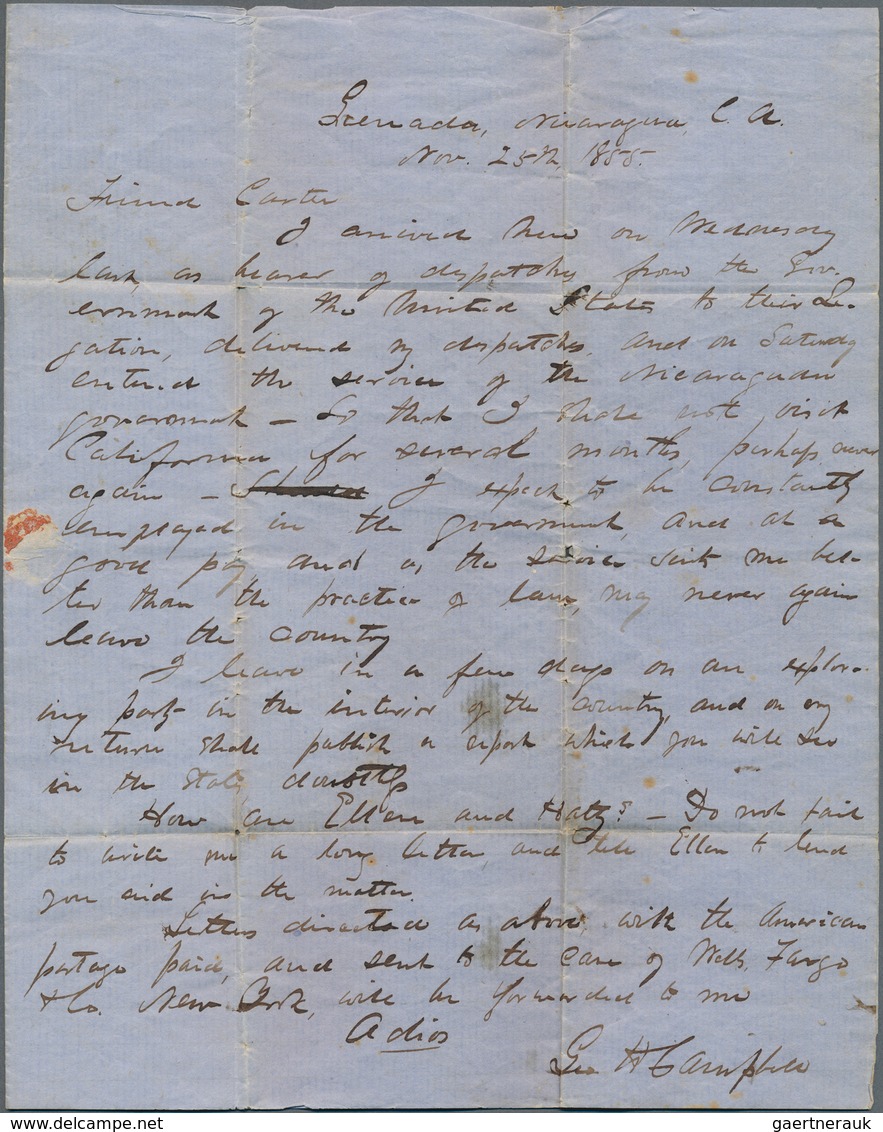 Grenada, Nicaragua, C. A.
Nov. 25th, 1855.
Friend Carter
I arrived here on Wednesday
last, as bearer of despatches from the Gov-
ernment of the United States to their Le-
gation, delivered my despatches, and on Saturday
entered the service of the Nicaraguan
government — So that I shall not visit
California for several months, perhaps never
again — I expect to be constantly
employed in the government, and at a
good pay, and as the service suits me bet-
ter than the practice of law, may never again
leave the country
I leave in a few days on an explor-
ing party in the interior of the country, and on my
return shall publish a report which you will see
in the States doubtless
How are Ellen and Hatty? — Do not fail
to write me a long letter, and tell Ellen to lend
you aid in the matter.
Letters directed as above, with the American
postage paid, and sent to the care of Wells, Fargo
& Co. New York, will be forwarded to me
Adios
Geo H Campbell
delcampe.net
gaertnerauk